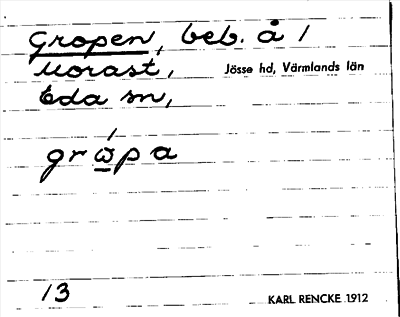 Gropen, beb. å 1
Morast,
Jösse hd, Värmlands län
Eda sn,
grώ̲pa
13
KARL RENCKE 1912